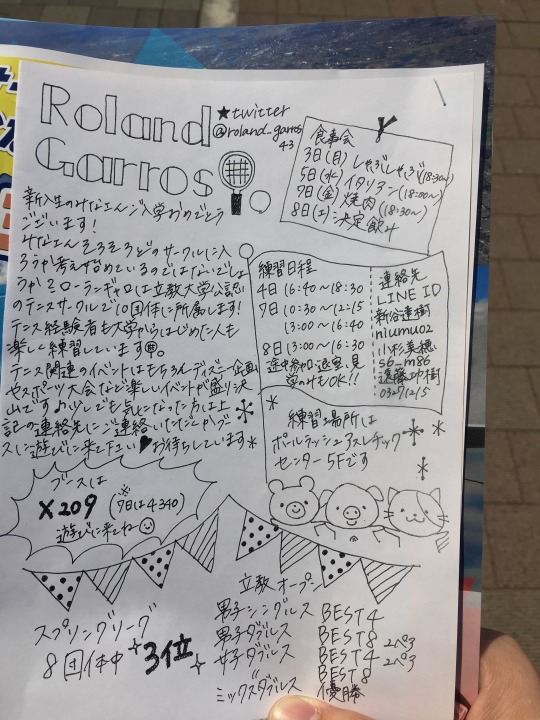 Roland
Garros
★twitter
@roland_garros
43
食事会
3日(月) しゃぶしゃぶ(18:30~)
5日(水) イタリアン(18:00~)
7日(金) 焼肉(18:30~)
8日(土) 決定飲み
新入生のみなさんご入学おめでとう
ございます!
みなさんそろそろどのサークルに入
ろうか考え始めているのではないでしょ
うか?ローランギャロは立教大学公認
のテニスサークルで10団体に所属します!
テニス経験者も大学からはじめた人も
楽しく練習しています
テニス関連のイベントはもちろんディズニー企画
やスポーツ大会など楽しいイベントが盛り沢
山です♪少しでも気になった方は上
記の連絡先にご連絡いただくかブー
スに遊びに来て下さい♥お待ちしています*
練習日程
4日 16:40~18:30
7日 10:30~12:15
13:00~16:40
8日 13:00~16:30
途中参加・退室、見
学のみもOK!!
連絡先
LINE ID
新谷達樹
niumu02
小杉美穂
s6_m86
遠藤功樹
03271215
練習場所は
ポルラッシュアスレチック
センター5Fです
ブースは
X209 (※7日は4340)
遊びに来てね
スプリングリーグ
8団体中 3位
立教オープン
男子シングルス BEST4
男子ダブルス BEST8 2ペア
女子ダブルス BEST4
BEST8 2ペア
ミックスダブルス 優勝